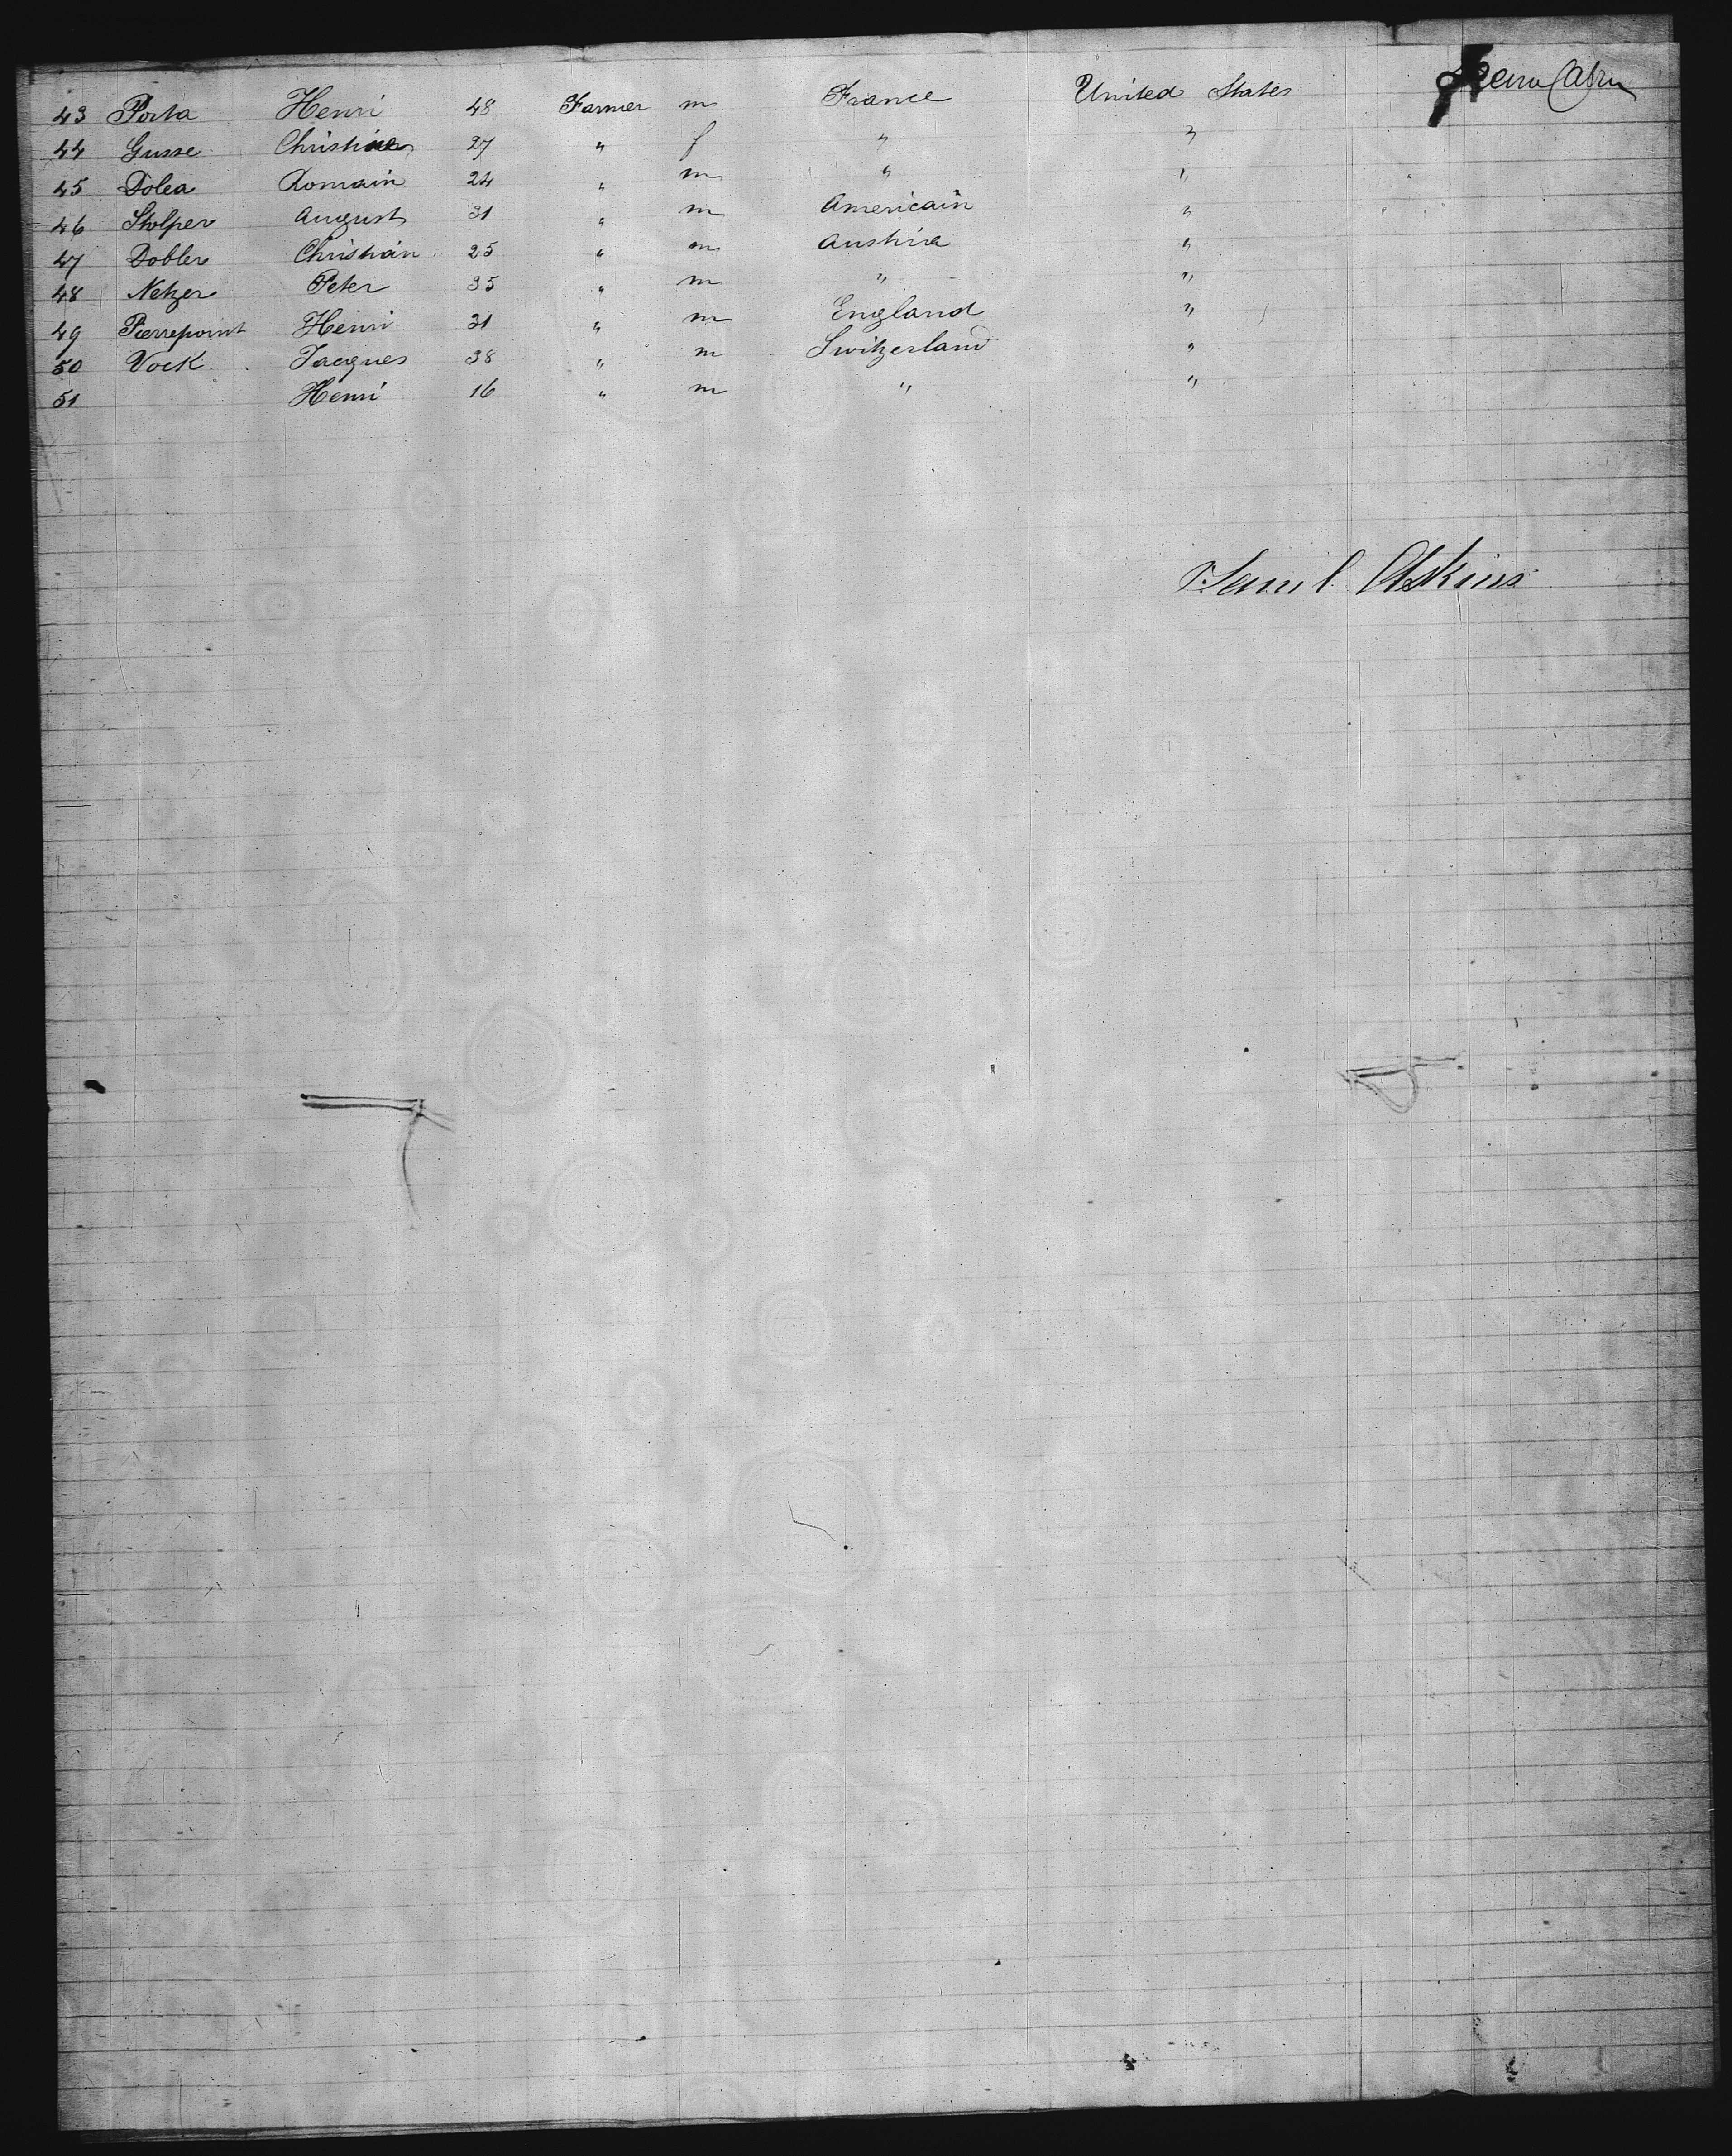 43 Porta Henri 48 Farmer m France United States
44 Gusse Christine 27 " f " "
45 Dolea Romain 24 " m " "
46 Stolper August 31 " m Americain "
47 Dobler Christian 25 " m Austria "
48 Netzer Peter 35 " m " "
49 Pierrepoint Henri 31 " m England "
50 Vock Jacques 38 " m Switzerland "
51 Henri 16 " m " "
Saml. Askins